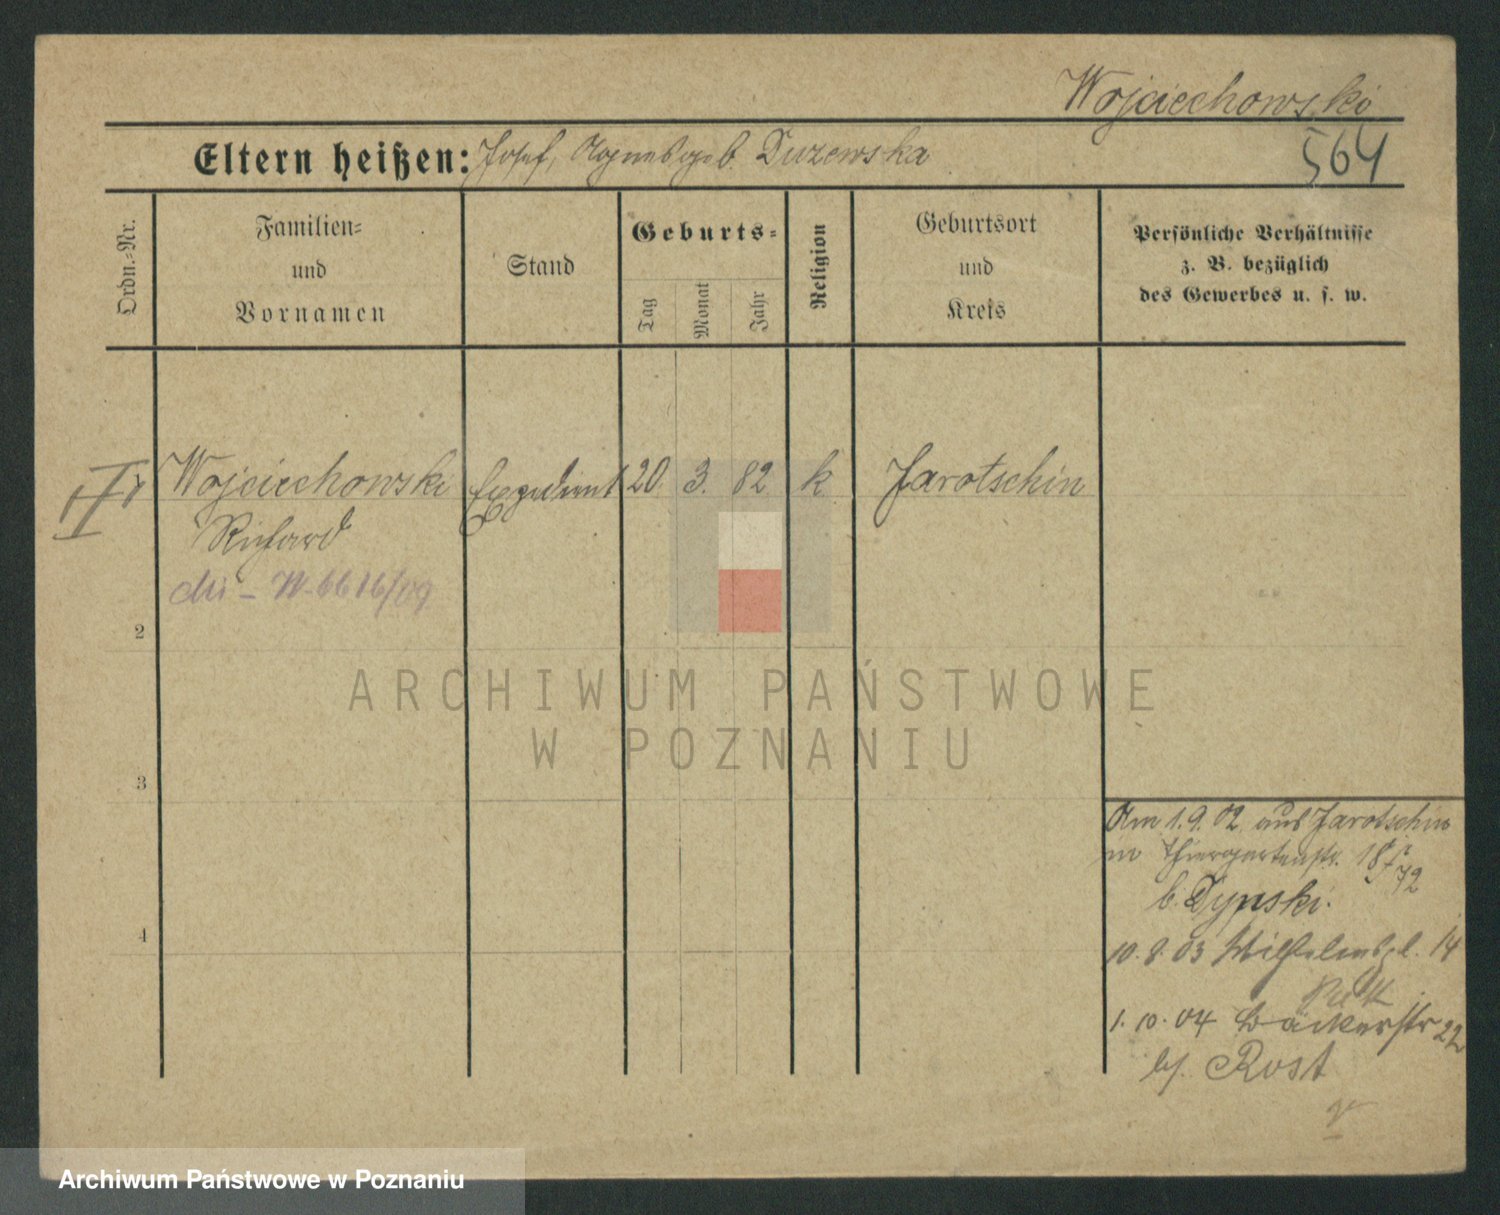 Wojciechowski
Eltern heißen: Josef, Agnes geb. Duzewska
564
Ordn.=Nr.
Familien=
und
Vornamen
Stand
Geburts=
Tag
Monat
Jahr
Religion
Geburtsort
und
Kreis
Persönliche Verhältnisse
z. B. bezüglich
des Gewerbes u. s. w.
Wojciechowski Expedient 20. 3. 82 k Jarotschin
Richard
W. 6616/09
2
ARCHIWUM PAŃSTWOWE
W POZNANIU
3
4
Am 1.9.02 aus Jarotschin
Thiergartenstr. 18
b. Dynski.
10.8.03 Wilhelmspl. 14
1.10.04 Bäckerstr 22
bei Rost
Archiwum Państwowe w Poznaniu